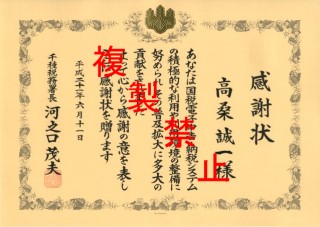 感謝状
高桑誠一様
あなたは国税電子申告納税システム
の積極的な利用や利用環境の整備に
努められその普及拡大に多大の
貢献を
心から感謝の意を表し
感謝状を贈ります
平成二十一年六月十一日
千種税務署長 河之口茂夫
複製禁止